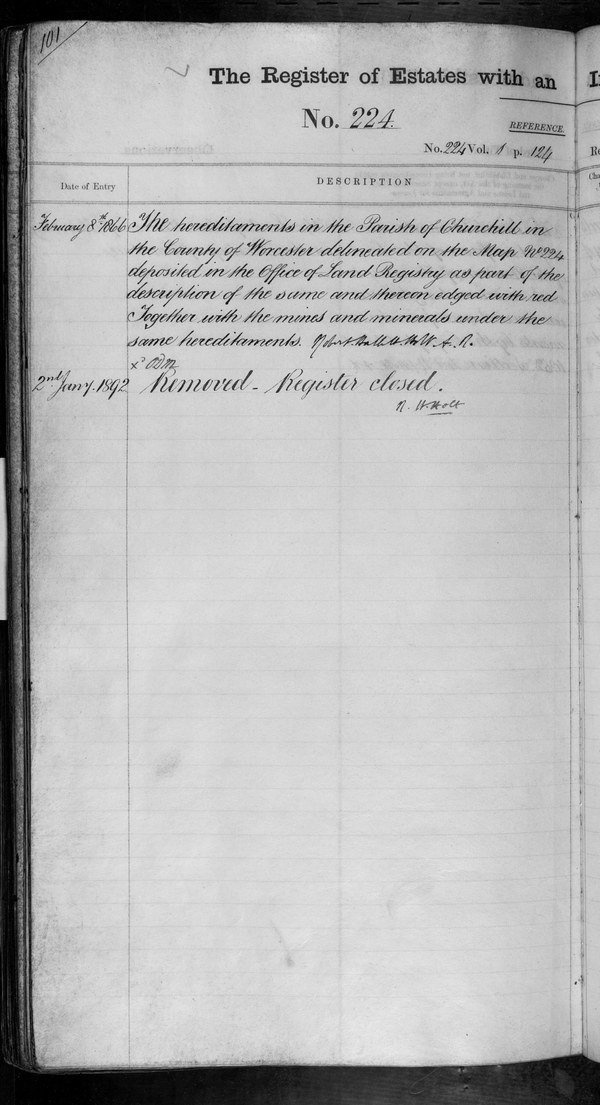 101
The Register of Estates with an
No. 224.
REFERENCE
No. 224 Vol. 1 p. 124
Date of Entry
DESCRIPTION
February 8th 1866 The hereditaments in the Parish of Churchill in
the County of Worcester delineated on the Map No 224
deposited in the Office of Land Registry as part of the
description of the same and thereon edged with red
Together with the mines and minerals under the
same hereditaments. Robert Hallett Holt A. R.
2nd Jany. 1892 Removed - Register closed.
R. H. Holt